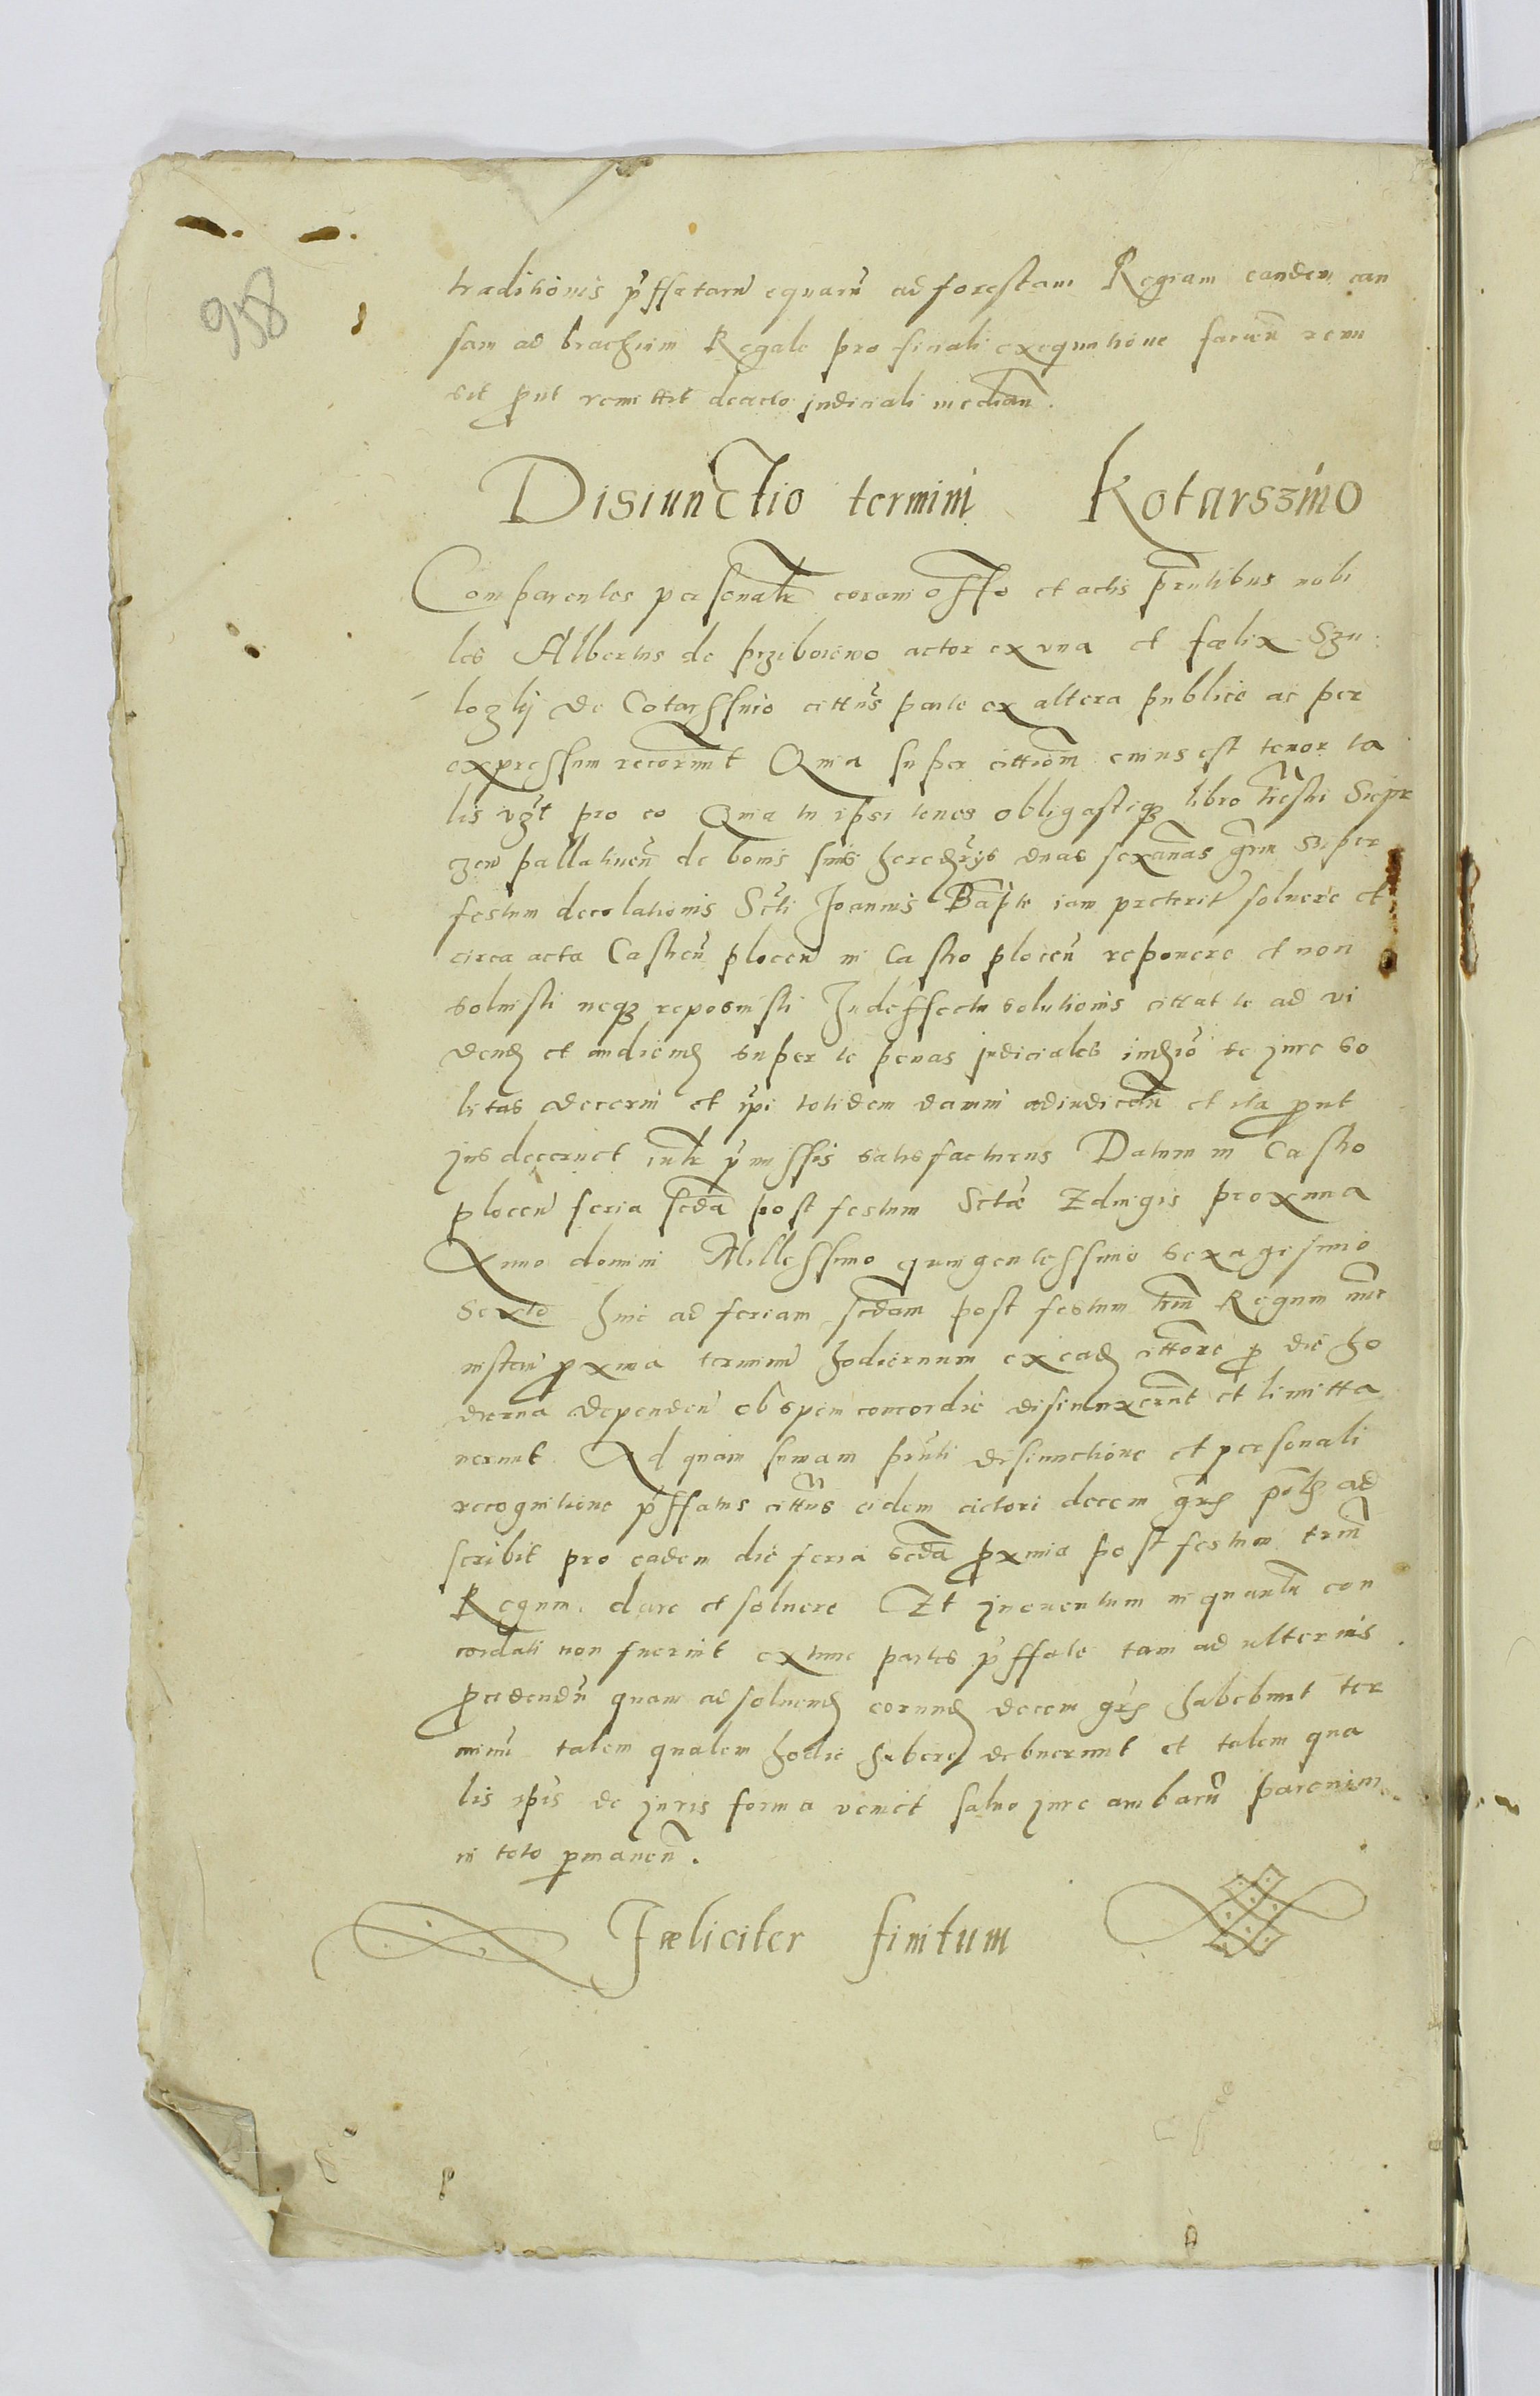 958
traditionis pͬffatarū equarū ad forestam Regiam eandem cau
sam ad brachium Regale pro finali exequutione faciēn remi
sit ꝓut remittit decreto judiciali median̄.
Disiunctio termini Kotarszino
Comparentes personalr̄ coram offo et actis pn̄tibus nobi
les Albertus de prziborowo actor ex vna et fælix Szu
de Cotarssino cittūs parte ex altera publice ac per
expressum recog̃runt Quia super cittiom̄ cuius est tenor ta
lis vꝫt pro eo Quia tu ipsi tenes obligastiqꝫ libro Siepr
czen̄ pallatineū de bonis suis heredr̄ijs duas sexan̄as grm̄ super
festum decolationis Scti Joannis Bapte iam preterit̄ soluere et
circa acta Castren̄ plocen̄ in Castro plocen̄ reponere et non
soluisti neqꝫ reposuisti Indeffectu solutionis cittat te ad vi
dend̄ et audiend̄ super te penas judiciales se jure so
litas decerni et ip̄i totidem damni adiudicatū et ita ꝓut
jus decernet intr̄ pͬmissis satisfacturus Datum in Castro
plocen̄ feria scdā post festum Sctæ Edwigis proxima
Anno domini Millessimo quingentessimo sexagesimo
sexto hinc ad feriam scdam post festum triū Regum nūc
instan̄ ꝓxima terminū hodiernum ex ead̄ cittore ꝓ die ho
dierna dependen̄ ob spem concordie disiunxerūnt et limitta
uerunt Ad quam pn̄ti disiunctione et personali
recognitione pͬffatus cittūs eidem actori decem grs̄ ad
scribit pro eadem die feria scdā ꝓxmia post festum triū
Regum dare et soluere Et jneuentum in quantū con
cordati non fuerint extunc partes pͬffate tam ad ulterius
ꝓcedendū quam ad soluend̄ eorund̄ decem grs̄ habebunt ter
minū talem qualem hodie habere debuerunt et talem qua
lis ip̄is de juris forma venit saluo jure ambarū parcium
in toto permanen̄.
Fæliciter finitum